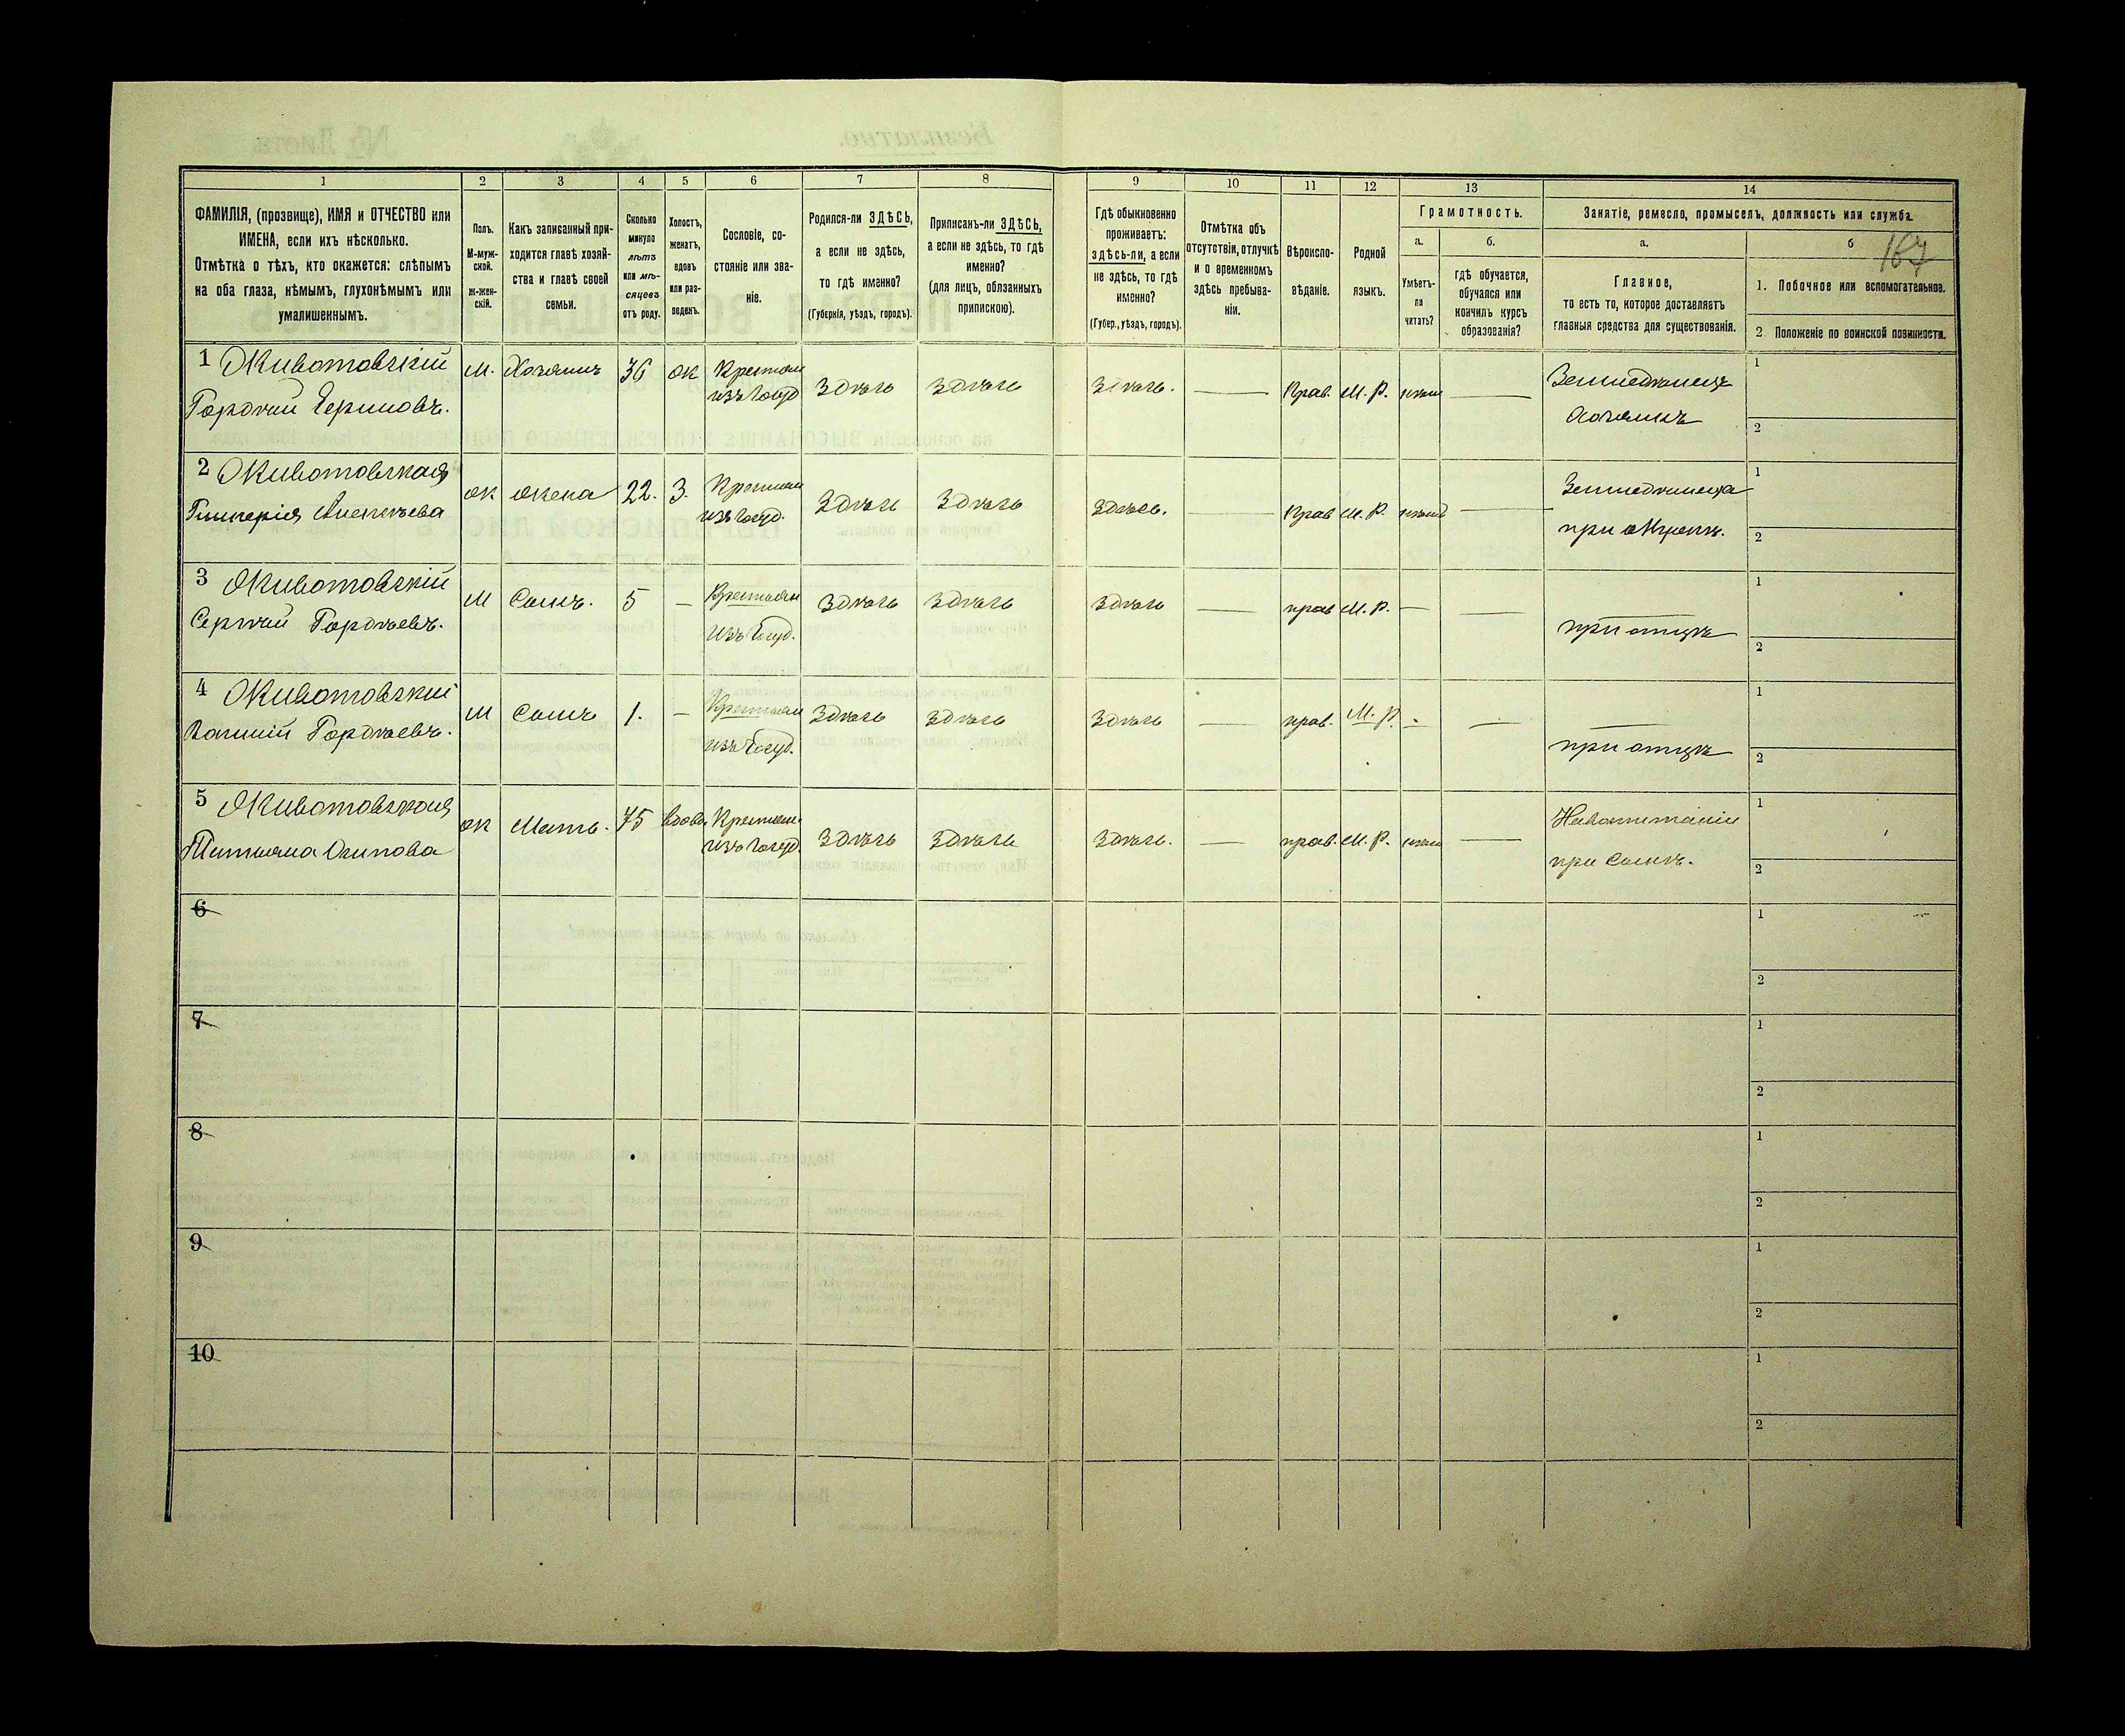 1 2 3 4 5 6 7 8 9 10 11 12 13 14
ФАМИЛІЯ, (прозвище), ИМЯ и ОТЧЕСТВО или
ИМЕНА, если ихъ нѣсколько.
Отмѣтка о тѣхъ, кто окажется: слѣпымъ
на оба глаза, нѣмымъ, глухонѣмымъ или
умалишеннымъ.
Полъ.
М-муж-
ской.
ж-жен-
скій.
Какъ записанный при-
ходится главѣ хозяй-
ства и главѣ своей
семьи.
Сколько
минуло
лѣтъ
или мѣ-
сяцевъ
отъ роду.
Холостъ,
женатъ,
вдовъ
или раз-
веденъ.
Сословіе, со-
стояніе или зва-
ніе.
Родился-ли ЗДѢСЬ,
а если не здѣсь,
то гдѣ именно?
(Губернія, уѣздъ, городъ).
Приписанъ-ли ЗДѢСЬ,
а если не здѣсь, то гдѣ
именно?
(для лицъ, обязанныхъ
припискою).
Гдѣ обыкновенно
проживаетъ:
здѣсь-ли, а если
не здѣсь, то гдѣ
именно?
(Губер., уѣздъ, городъ).
Отмѣтка объ
отсутствіи, отлучкѣ
и о временномъ
здѣсь пребыва-
ніи.
Вѣроиспо-
вѣданіе.
Родной
языкъ.
Грамотность.
а.
Умѣетъ-
ли
читать?
б.
гдѣ обучается,
обучался или
кончилъ курсъ
образованія?
Занятіе, ремесло, промыселъ, должность или служба.
а.
Главное,
то есть то, которое доставляетъ
главныя средства для существованія.
б
167
1. Побочное или вспомогательное.
2. Положеніе по воинской повинности.
1 Животовскій М. Хозяинъ 36 ж Крестьян здѣсь здѣсь здѣсь. — Прав. М. Р. — Земледѣлецъ 1
Гордѣй изъ Госуд хозяинъ 2
2 Животовская ж жена 22. З. Крестьян здѣсь здѣсь здѣсь. — Прав М. Р. — 1
Гликерія Алексѣева изъ Госуд. 2
3 Животовскій М Сынъ. 5 — Крестьян здѣсь здѣсь здѣсь — прав М. Р. — — 1
Сергѣй Гордѣевъ. изъ Госуд. при отцѣ 2
4 Животовскій М Сынъ 1. — Крестьян здѣсь здѣсь здѣсь — прав. М. Р. - — 1
Гордѣевъ. изъ Госуд. при отцѣ 2
5 Животовская ж Мать. 75 вдова Крестьян. здѣсь здѣсь здѣсь. — прав. М. Р. — 1
Татьяна Осипова изъ Госуд. при сынѣ. 2
6 1
2
7 1
2
8 1
2
9 1
2
10 1
2